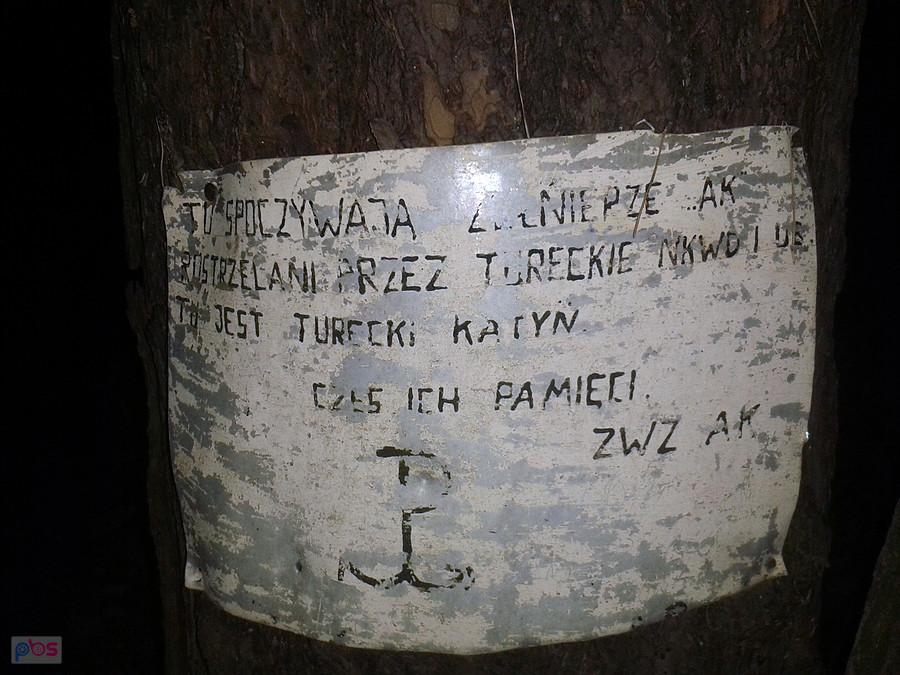 TU SPOCZYWAJA ŻOŁNIEPZE „AK"
ROSTRZELANI PRZEZ TURECKIE NKWD I UB.
TU JEST TURECKI KATYŃ.
CZEŚ ICH PAMIĘCI.
ZWZ AK
pbs